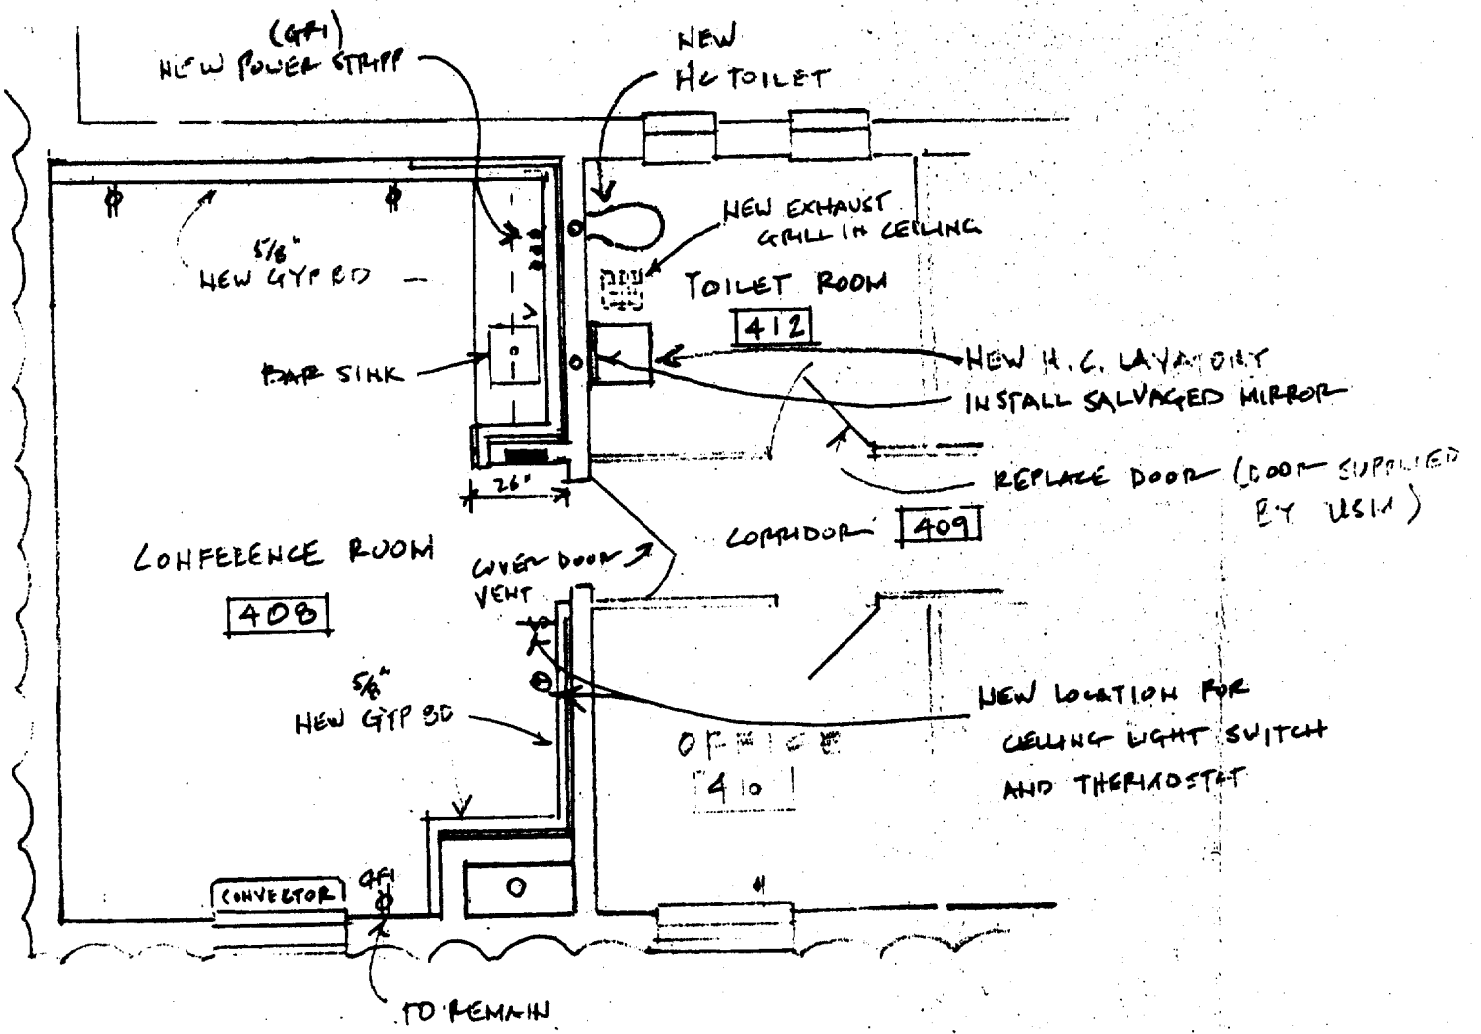 (GFI)
NEW POWER STRIPP
NEW
HC TOILET
NEW EXHAUST
GRILL IN CEILING
5/8"
NEW GYP BD
TOILET ROOM
412
BAR SINK
NEW H.C. LAVATORY
INSTALL SALVAGED MIRROR
26"
REPLACE DOOR (DOOR SUPPLIED
BY USM)
CORRIDOR 409
CONFERENCE ROOM
408
COVER DOOR
VENT
5/8"
NEW GYP BD
NEW LOCATION FOR
CEILING LIGHT SWITCH
AND THERMOSTAT
OFFICE
410
CONVECTOR
GFI
TO REMAIN